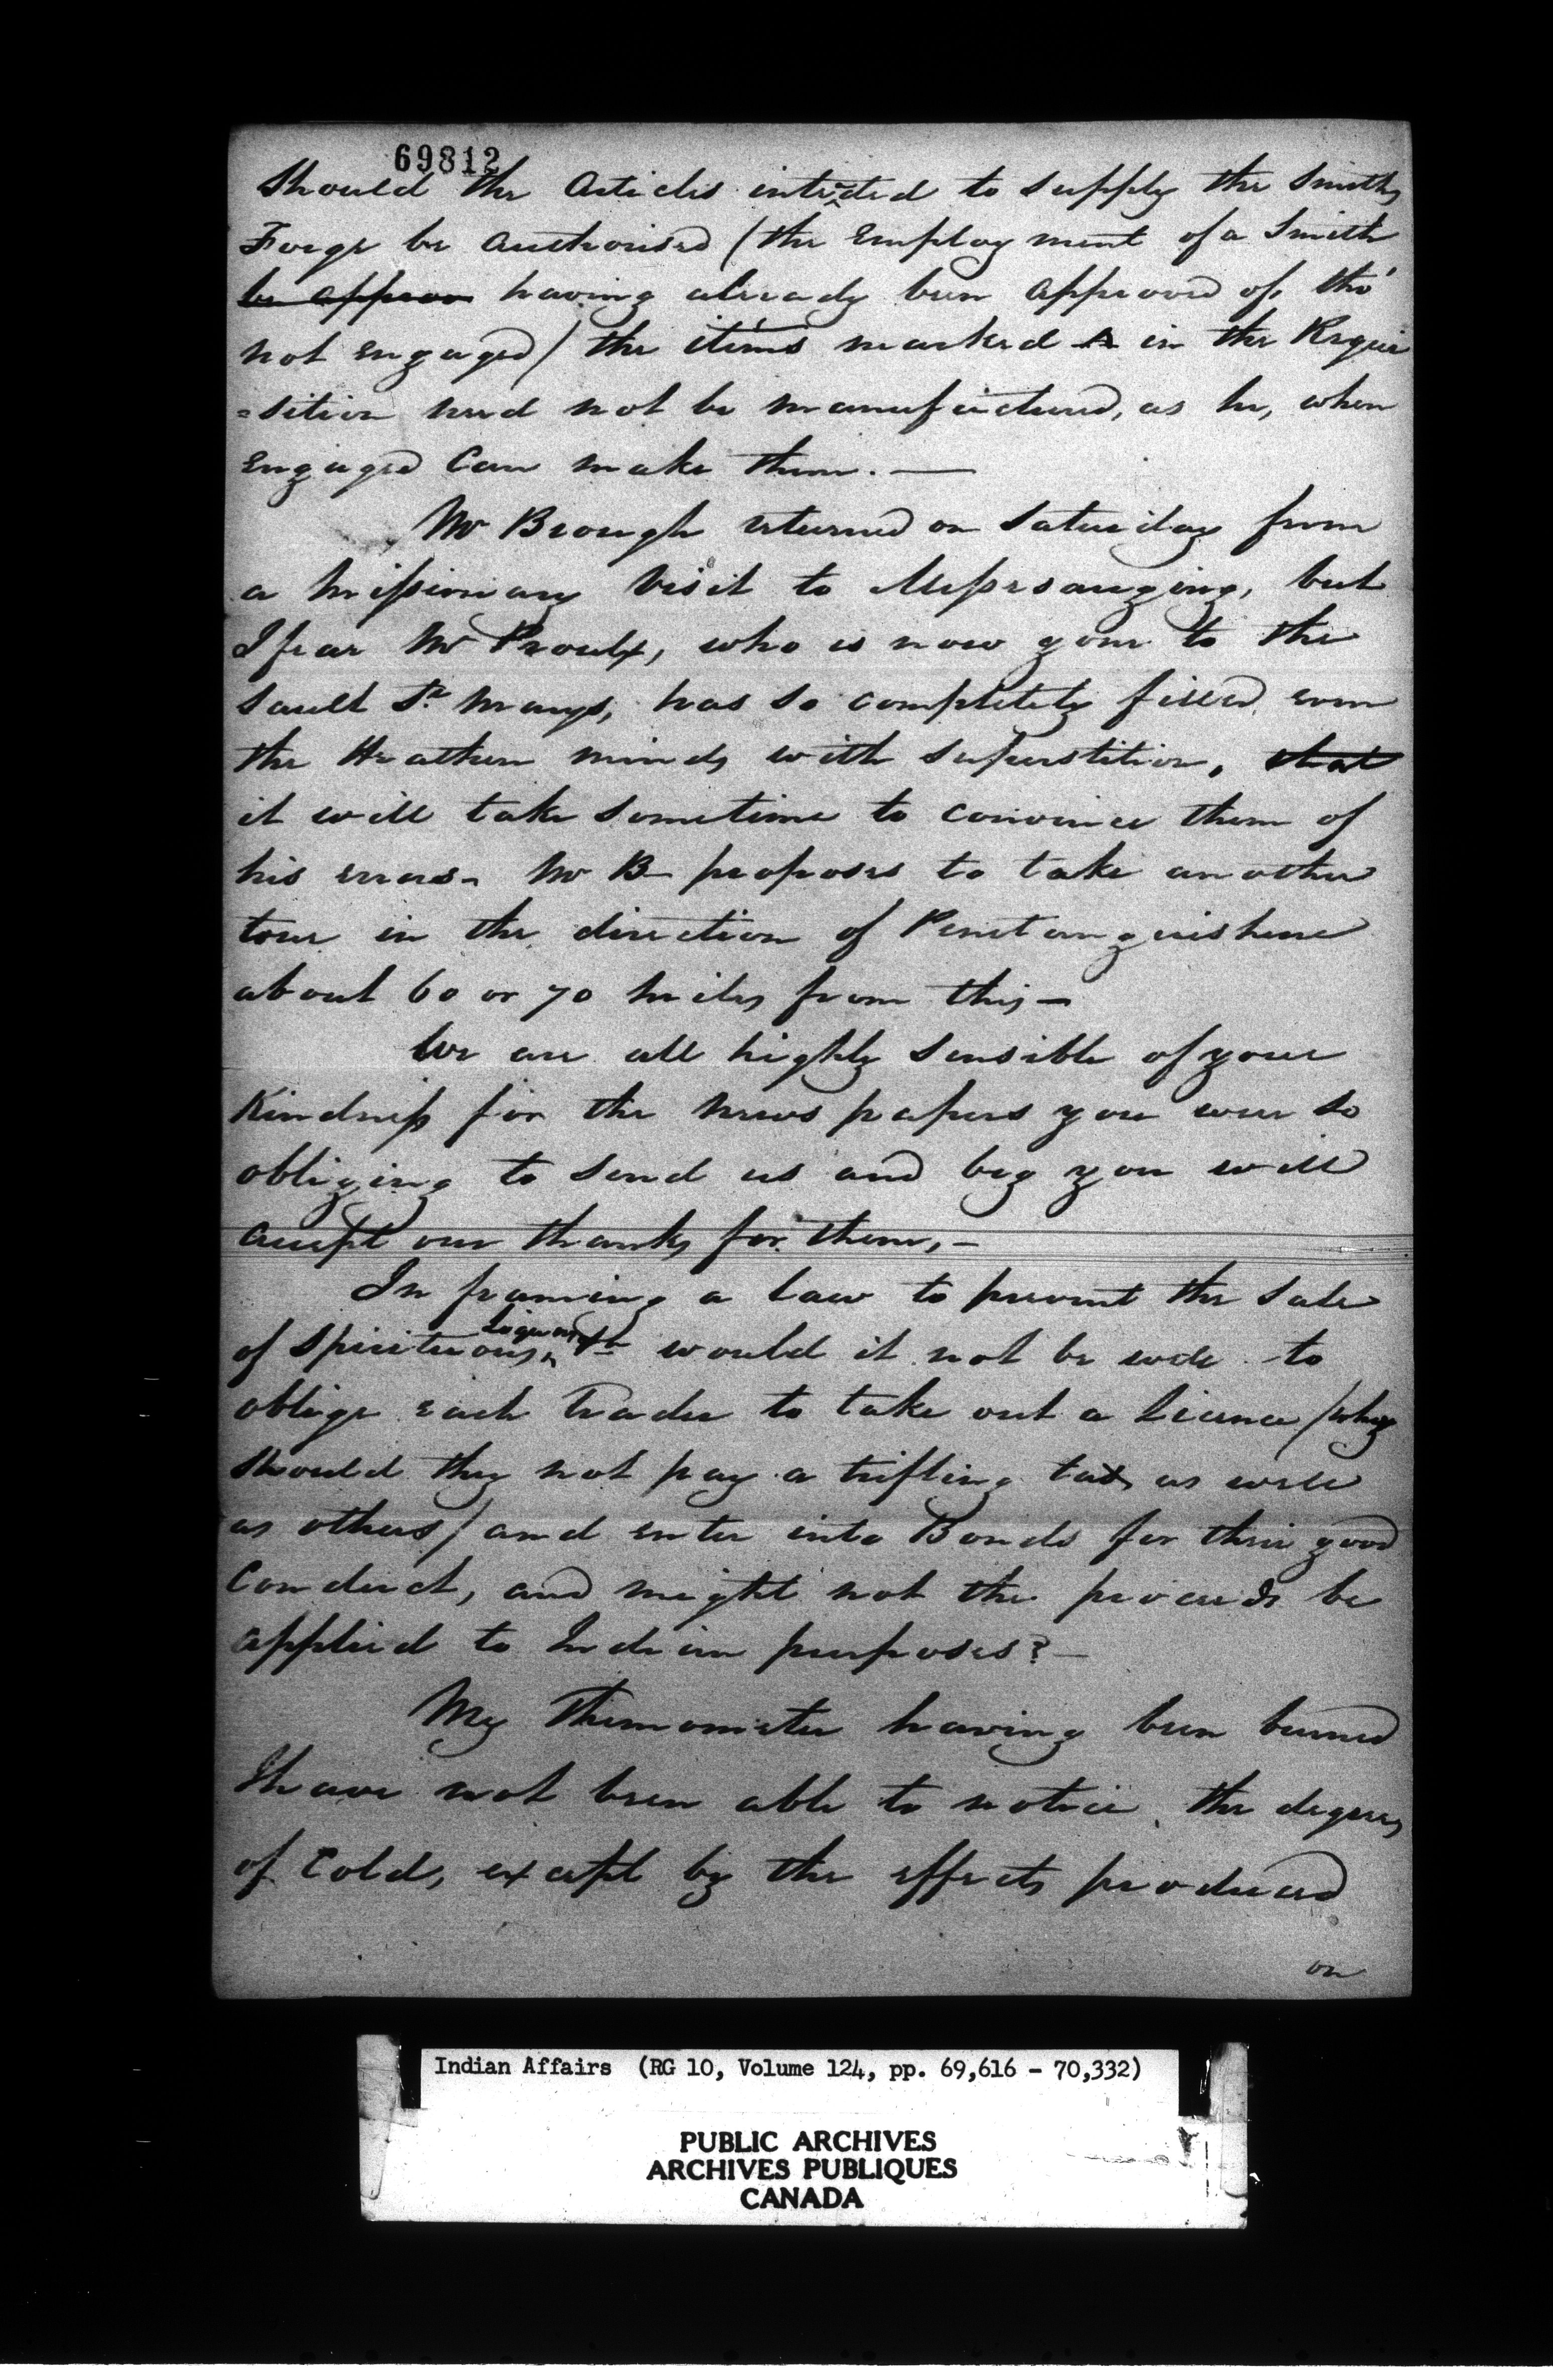 69812
Should the Articles intended to supply the Smiths
Forge be Authorised (the Employment of a Smith
be approv having already been approved of, tho'
not Engaged) the items marked in the Requi
=sition need not be manufactured, as he, when
Engaged Can make them. —
Mr Brough returned on Saturday from
a Missionary visit to Missesaugeing, but
I fear Mr Proulx, who is now gone to the
Sault Ste Marys, has so completely filled even
the Heathen minds with superstition, that
it will take sometime to convince them of
his errors - Mr B— proposes to take another
tour in the direction of Penetanguishene
about 60 or 70 miles from this —
We are all highly sensible of your
Kindness for the News papers you were so
obliging to send us and beg you will
accept our thanks for them, —
In framing a law to prevent the Sale
of Spirituous Liquors &c would it not be well to
oblige each Trader to take out a Licence (why
should they not pay a trifling tax as well
as others) and enter into Bonds for their good
Conduct, and might not the proceeds be
applied to Indian purposes? —
My Thermometer having been burned
I have not been able to notice the degrees
of Cold, except by the effects produced
on
Indian Affairs (RG 10, Volume 124, pp. 69,616 - 70,332)
PUBLIC ARCHIVES
ARCHIVES PUBLIQUES
CANADA